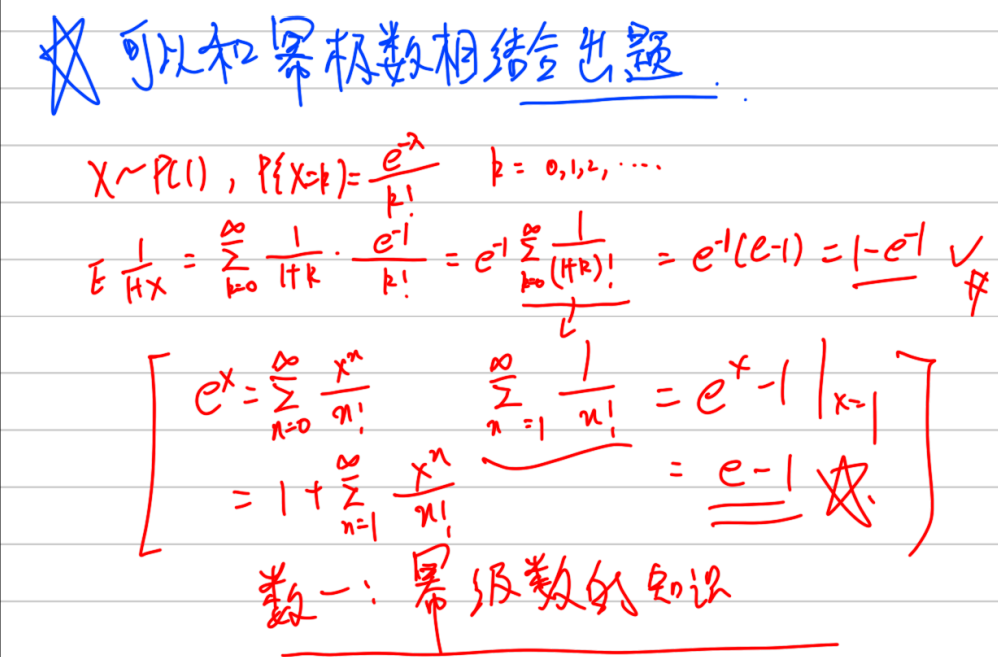 ☆ 可以和幂极数相结合出题.
X~P(1), P{X=k}=e^{-λ}/k! k=0,1,2,....
E 1/(1+X) = ∑_{k=0}^{∞} 1/(1+k) · e^{-1}/k! = e^{-1} ∑_{k=0}^{∞} 1/(1+k)! = e^{-1}(e-1) = 1-e^{-1} ✓ ☆
[ e^x = ∑_{n=0}^{∞} x^n/n! ∑_{n=1}^{∞} 1/n! = e^x-1 |_{x=1}
= 1+∑_{n=1}^{∞} x^n/n! = e-1 ☆. ]
数一: 幂级数的知识